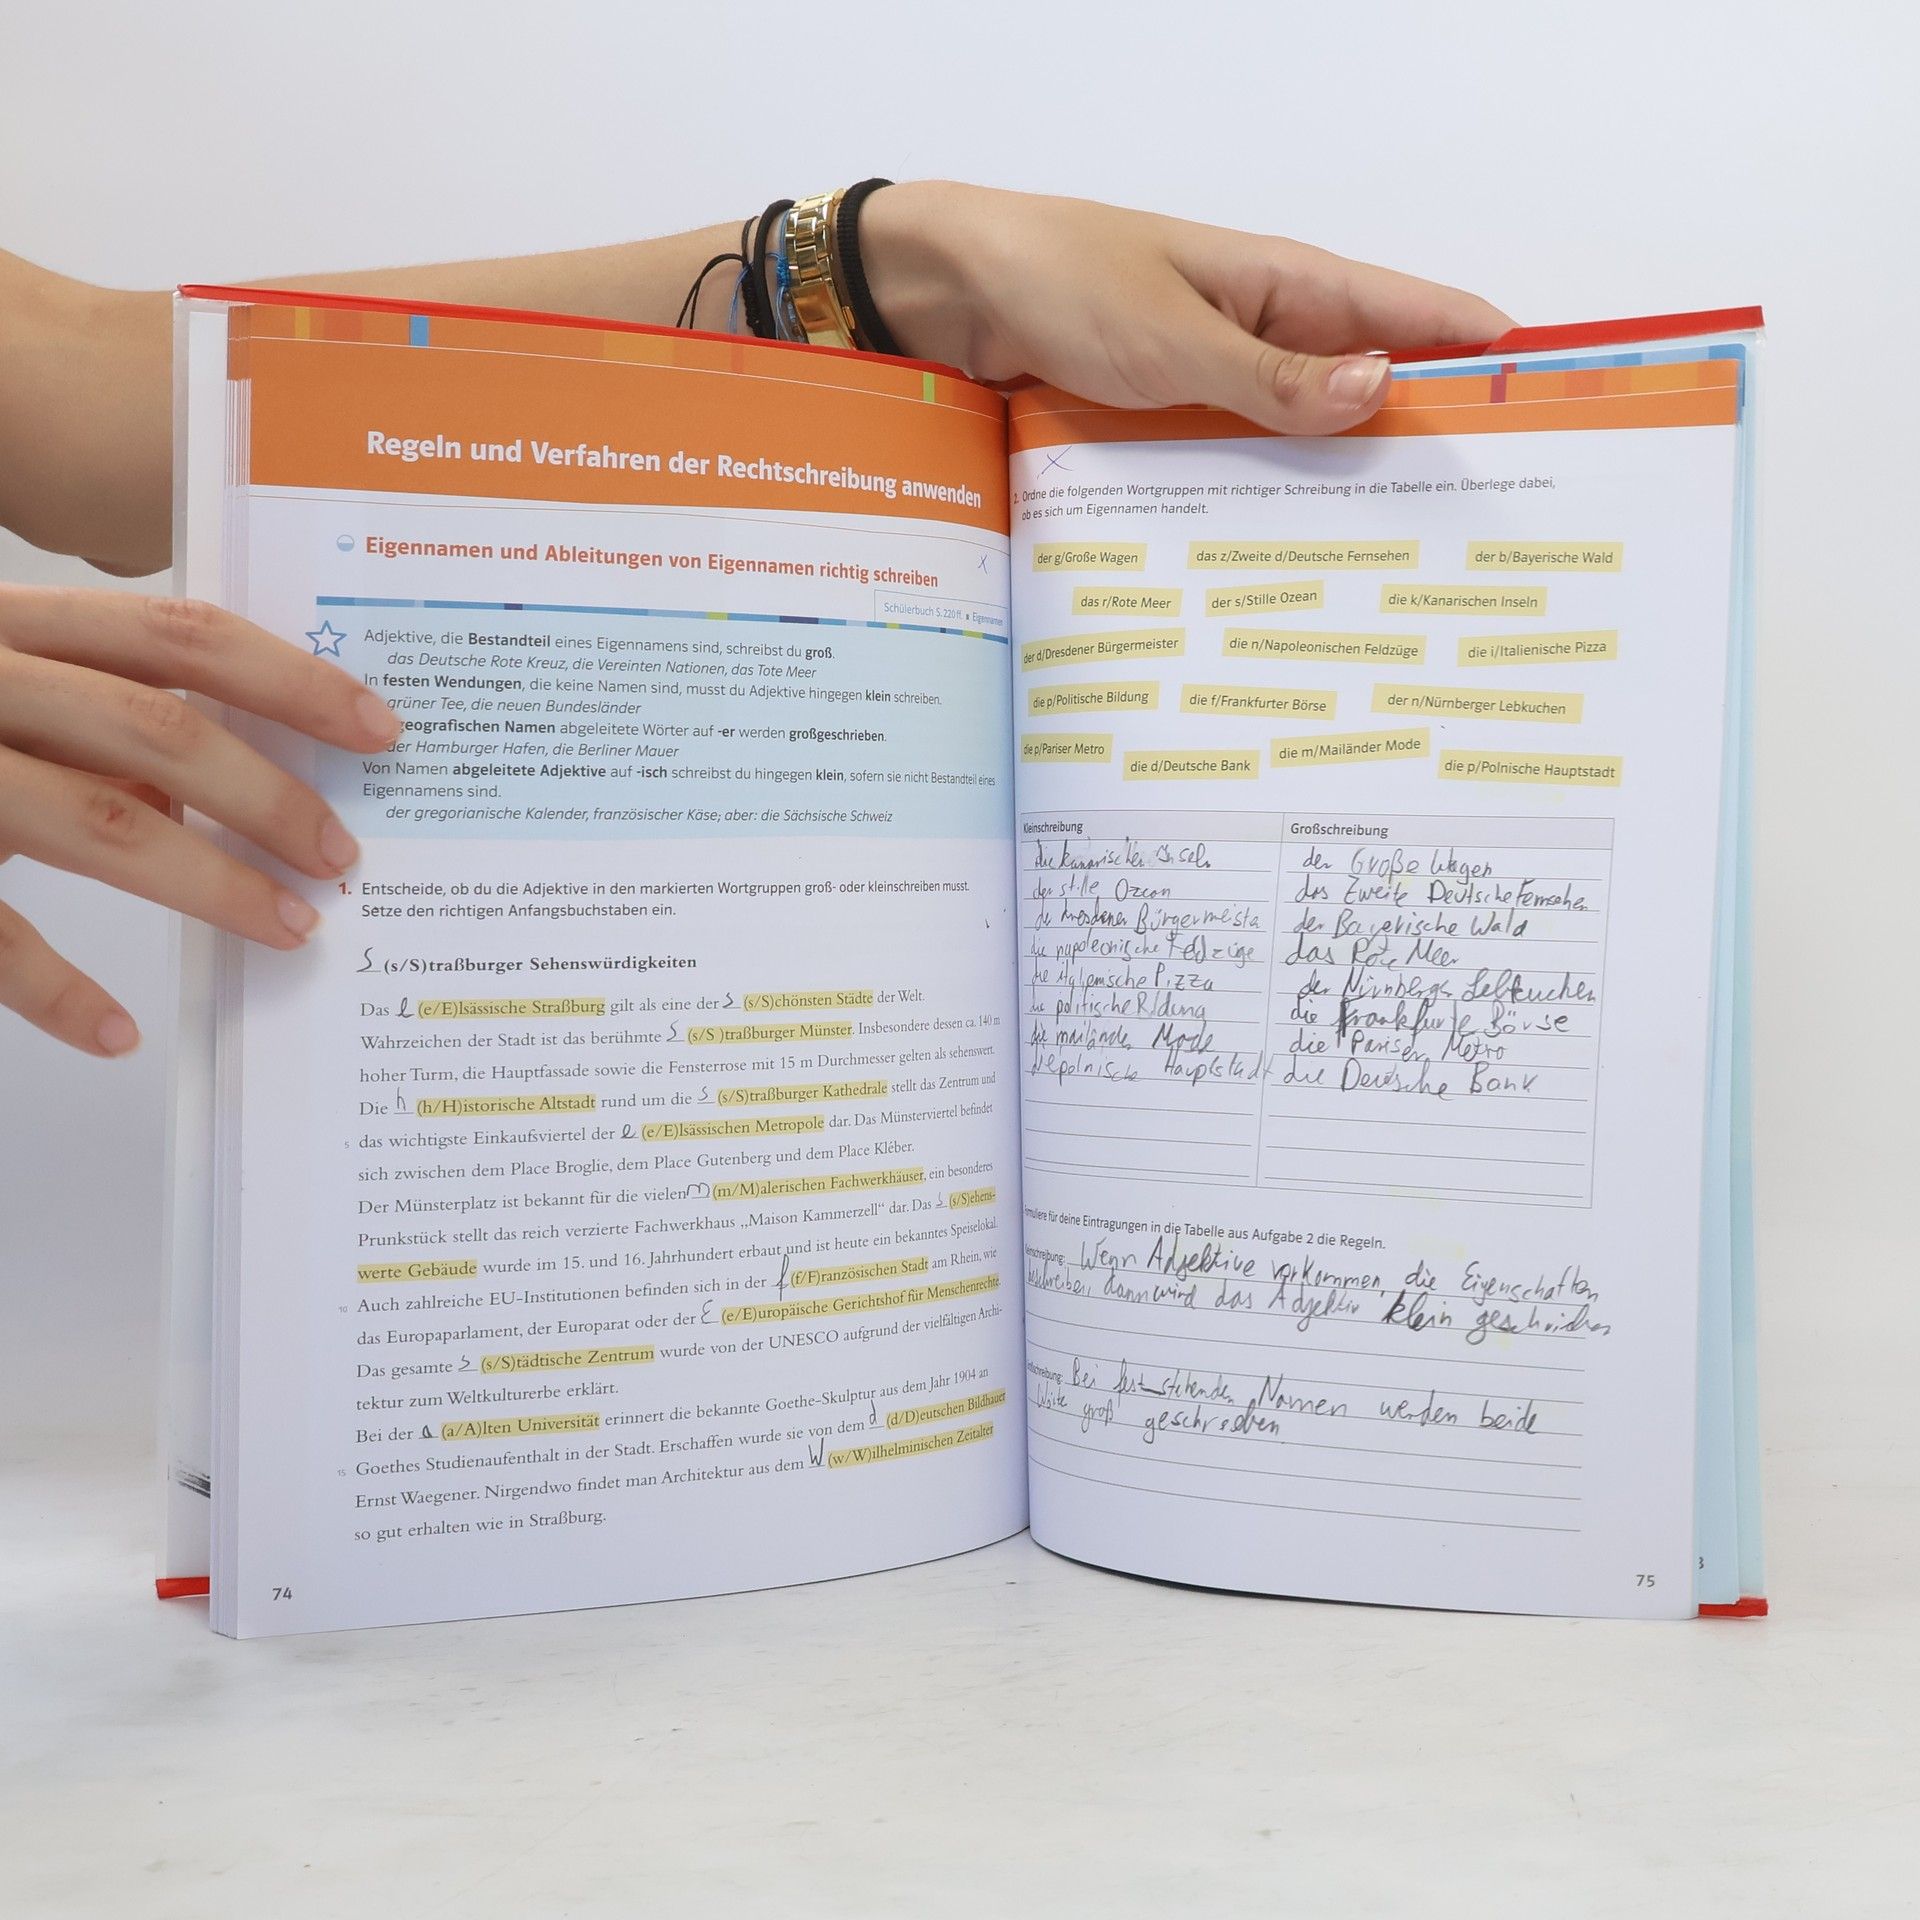 Regeln und Verfahren der Rechtschreibung anwenden
Eigennamen und Ableitungen von Eigennamen richtig schreiben
Schülerbuch S. 220 ff. ▪ Eigennamen
Adjektive, die Bestandteil eines Eigennamens sind, schreibst du groß.
das Deutsche Rote Kreuz, die Vereinten Nationen, das Tote Meer
In festen Wendungen, die keine Namen sind, musst du Adjektive hingegen klein schreiben.
grüner Tee, die neuen Bundesländer
geografischen Namen abgeleitete Wörter auf -er werden großgeschrieben.
der Hamburger Hafen, die Berliner Mauer
Von Namen abgeleitete Adjektive auf -isch schreibst du hingegen klein, sofern sie nicht Bestandteil eines
Eigennamens sind.
der gregorianische Kalender, französischer Käse; aber: die Sächsische Schweiz
1. Entscheide, ob du die Adjektive in den markierten Wortgruppen groß- oder kleinschreiben musst.
Setze den richtigen Anfangsbuchstaben ein.
S (s/S)traßburger Sehenswürdigkeiten
Das e (e/E)lsässische Straßburg gilt als eine der s (s/S)chönsten Städte der Welt.
Wahrzeichen der Stadt ist das berühmte S (s/S )traßburger Münster. Insbesondere dessen ca. 140 m
hoher Turm, die Hauptfassade sowie die Fensterrose mit 15 m Durchmesser gelten als sehenswert.
Die h (h/H)istorische Altstadt rund um die S (s/S)traßburger Kathedrale stellt das Zentrum und
5 das wichtigste Einkaufsviertel der e (e/E)lsässischen Metropole dar. Das Münsterviertel befindet
sich zwischen dem Place Broglie, dem Place Gutenberg und dem Place Kléber.
Der Münsterplatz ist bekannt für die vielen m (m/M)alerischen Fachwerkhäuser, ein besonderes
Prunkstück stellt das reich verzierte Fachwerkhaus „Maison Kammerzell“ dar. Das s (s/S)ehens-
werte Gebäude wurde im 15. und 16. Jahrhundert erbaut und ist heute ein bekanntes Speiselokal.
10 Auch zahlreiche EU-Institutionen befinden sich in der f (f/F)ranzösischen Stadt am Rhein, wie
das Europaparlament, der Europarat oder der E (e/E)uropäische Gerichtshof für Menschenrechte.
Das gesamte s (s/S)tädtische Zentrum wurde von der UNESCO aufgrund der vielfältigen Archi-
tektur zum Weltkulturerbe erklärt.
Bei der a (a/A)lten Universität erinnert die bekannte Goethe-Skulptur aus dem Jahr 1904 an
15 Goethes Studienaufenthalt in der Stadt. Erschaffen wurde sie von dem d (d/D)eutschen Bildhauer
Ernst Waegener. Nirgendwo findet man Architektur aus dem W (w/W)ilhelminischen Zeitalter
so gut erhalten wie in Straßburg.
74
2. Ordne die folgenden Wortgruppen mit richtiger Schreibung in die Tabelle ein. Überlege dabei,
ob es sich um Eigennamen handelt.
der g/Große Wagen das z/Zweite d/Deutsche Fernsehen der b/Bayerische Wald
das r/Rote Meer der s/Stille Ozean die k/Kanarischen Inseln
der d/Dresdener Bürgermeister die n/Napoleonischen Feldzüge die i/Italienische Pizza
die p/Politische Bildung die f/Frankfurter Börse der n/Nürnberger Lebkuchen
die p/Pariser Metro die d/Deutsche Bank die m/Mailänder Mode die p/Polnische Hauptstadt
Kleinschreibung Großschreibung
die kanarischen Inseln der Große Wagen
der stille Ozean das Zweite Deutsche Fernsehen
der dresdener Bürgermeister der Bayerische Wald
die napoleonische Feldzüge das Rote Meer
die italienische Pizza der Nürnberger Lebkuchen
die politische Bildung die Frankfurte Börse
die mailänder Mode die Pariser Metro
die polnische Hauptstadt die Deutsche Bank
Formuliere für deine Eintragungen in die Tabelle aus Aufgabe 2 die Regeln.
Kleinschreibung: Wenn Adjektive vorkommen, die Eigenschaften
beschreiben, dann wird das Adjektiv klein geschrieben
Großschreibung: Bei fest stehenden Namen werden beide
groß geschrieben
75
3